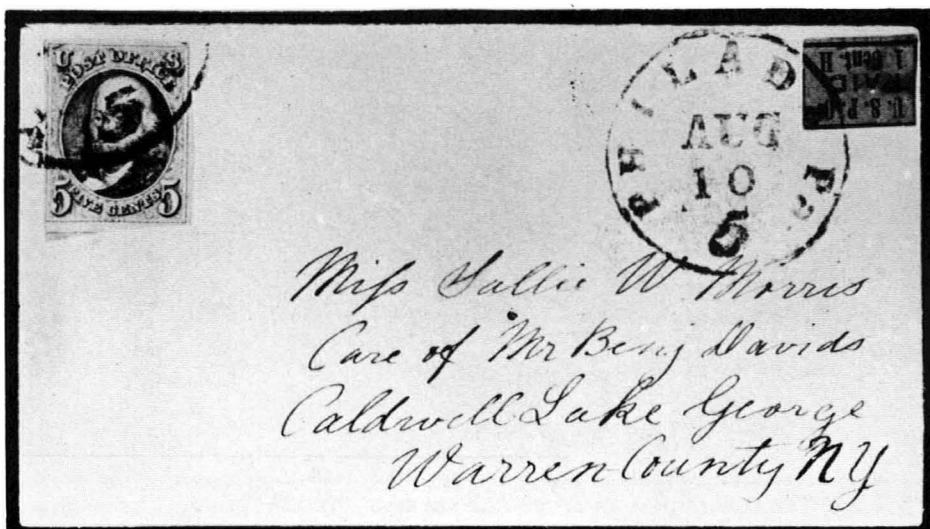 U S
POST OFFICE
5 FIVE CENTS 5
PHILADA Pa
AUG
10
5
U. S. P. O.
PAID
1 Cent.
Miss Sallie W Morris
Care of Mr Benj Davids
Caldwell Lake George
Warren County NY